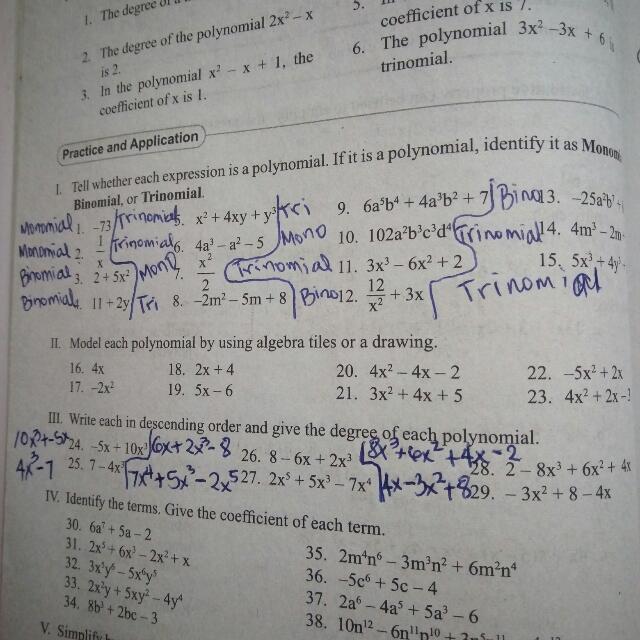 1. The degree of a
2. The degree of the polynomial 2x² – x
is 2.
3. In the polynomial x² – x + 1, the
coefficient of x is 1.
5.
coefficient of x is 7.
6. The polynomial 3x² –3x + 6 is
trinomial.
Practice and Application
I. Tell whether each expression is a polynomial. If it is a polynomial, identify it as Monom
Binomial, or Trinomial.
Monomial 1. –73 Trinomial 5. x² + 4xy + y³ Tri 9. 6a⁵b⁴ + 4a³b² + 7 Bino 13. –25a²b⁷
Monomial 2. 1/x Trinomial 6. 4a³ – a² – 5 Mono 10. 102a²b³c³d⁴ Trinomial 14. 4m³ – 2m
Binomial 3. 2 + 5x² Mono 7. x²/2 Trinomial 11. 3x³ – 6x² + 2 15. 5x³ + 4y³
Binomial 4. 11 + 2y Tri 8. –2m² – 5m + 8 Bino 12. 12/x² + 3x Trinomial
II. Model each polynomial by using algebra tiles or a drawing.
16. 4x 18. 2x + 4 20. 4x² – 4x – 2 22. –5x² + 2x
17. –2x² 19. 5x – 6 21. 3x² + 4x + 5 23. 4x² + 2x
III. Write each in descending order and give the degree of each polynomial.
10x³+-5x 24. –5x + 10x³ 6x+2x³-8 26. 8 – 6x + 2x³ 8x³+6x²+4x-2 28. 2 – 8x³ + 6x² + 4x
4x³-7 25. 7 – 4x³ 7x⁴+5x³-2x⁵ 27. 2x⁵ + 5x³ – 7x⁴ 4x-3x²+8 29. – 3x² + 8 – 4x
IV. Identify the terms. Give the coefficient of each term.
30. 6a⁷ + 5a – 2
31. 2x⁵ + 6x³ – 2x² + x
32. 3x³y⁶ – 5x⁶y⁵
33. 2x²y + 5xy² – 4y⁴
34. 8b³ + 2bc – 3
35. 2m⁴n⁶ – 3m³n² + 6m²n⁴
36. –5c⁶ + 5c – 4
37. 2a⁶ – 4a⁵ + 5a³ – 6
38. 10n¹² – 6n¹¹p¹⁰
V. Simplify